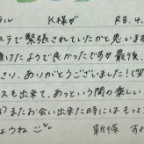 K様が R8.4.
ステで緊張されていたかと思いま
抜けたようで良かったですが最後、
さい、ありがとうございました!(笑
スも出来て、あっという間の楽しい
またお会い出来た時にはもっと
ょうね